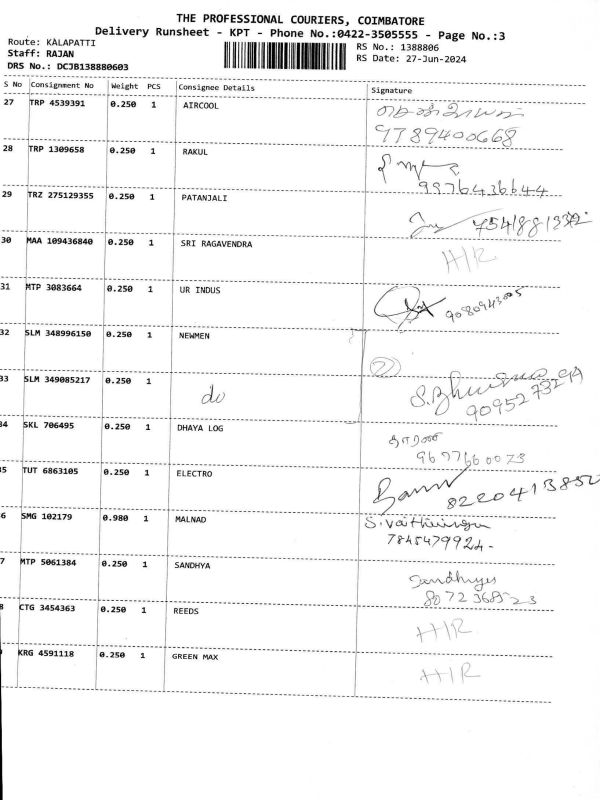 THE PROFESSIONAL COURIERS, COIMBATORE
Delivery Runsheet - KPT - Phone No.:0422-3505555 - Page No.:3
Route: KALAPATTI
RS No.: 1388806
Staff: RAJAN
RS Date: 27-Jun-2024
DRS No.: DCJB138880603
S No Consignment No Weight PCS Consignee Details Signature
27 TRP 4539391 0.250 1 AIRCOOL
9789400668
28 TRP 1309658 0.250 1 RAKUL
9976436644
29 TRZ 275129355 0.250 1 PATANJALI
30 MAA 109436840 0.250 1 SRI RAGAVENDRA
H/R
31 MTP 3083664 0.250 1 UR INDUS
9080943005
32 SLM 348996150 0.250 1 NEWMEN
2
33 SLM 349085217 0.250 1 do
34 SKL 706495 0.250 1 DHAYA LOG
9677660073
35 TUT 6863105 0.250 1 ELECTRO
8220413850
6 SMG 102179 0.980 1 MALNAD
7845479924-
7 MTP 5061384 0.250 1 SANDHYA
8 CTG 3454363 0.250 1 REEDS
H/R
KRG 4591118 0.250 1 GREEN MAX
H/R